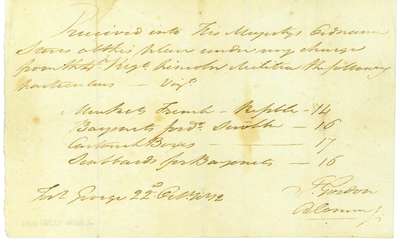 Received into His Majestys Ordnance
Stores at this place under my charge
from the 4th Regt Lincoln Militia the following
Particulars — Vizt
Muskets French — Repble — 14
Bayonets for do. Servble — 16
Cartouch Boxes — 17
Scabbards for Bayonets — 16
Fort George 22d Octr 1812
Gordon